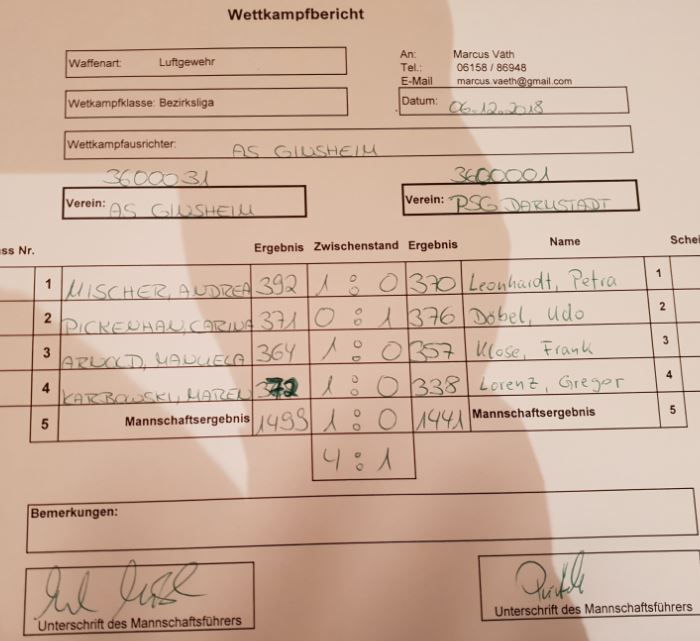 Wettkampfbericht
Waffenart: Luftgewehr
An: Marcus Väth
Tel.: 06158 / 86948
E-Mail marcus.vaeth@gmail.com
Wetkampfklasse: Bezirksliga
Datum: 06.12.2018
Wettkampfausrichter: AS GINSHEIM
3600031 3600001
Verein: AS GINSHEIM Verein: PSG DARMSTADT
ss Nr. Ergebnis Zwischenstand Ergebnis Name Schei
1 MISCHER, ANDREA 392 1 : 0 370 Leonhardt, Petra 1
2 PICKENHAN, CARINA 371 0 : 1 376 Döbel, Udo 2
3 ARNOLD, MANUELA 364 1 : 0 357 Klose, Frank 3
4 KARBOWSKI, MAREN 372 1 : 0 338 Lorenz, Gregor 4
5 Mannschaftsergebnis 1499 1 : 0 1441 Mannschaftsergebnis 5
4 : 1
Bemerkungen:
Unterschrift des Mannschaftsführers Unterschrift des Mannschaftsführers